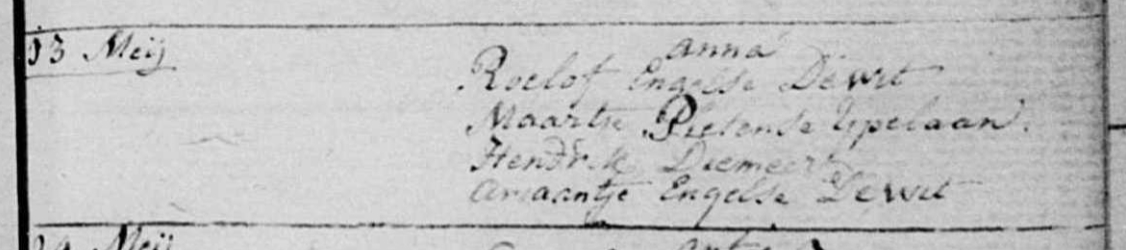 13 Meij
anna
Roelof Engelse Dewit
Maartje Pieterse Ypelaan.
Hendrik Diemeer
Ariaantje Engelse Dewit
Meij